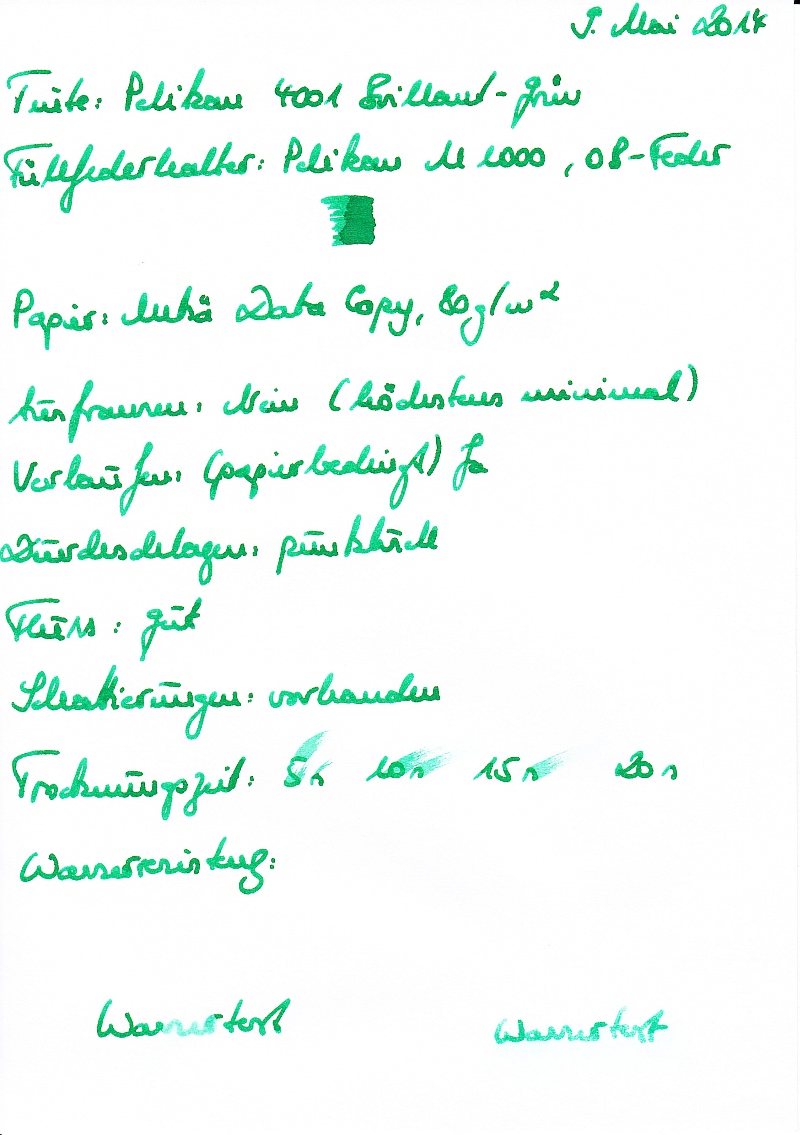 9. Mai 2014
Tinte: Pelikan 4001 Brillant-Grün
Füllfederhalter: Pelikan M 1000, OB-Feder
Papier: Metsä Data Copy, 80 g/m²
Ausfransen: Nein (höchstens minimal)
Verlaufen: (papierbedingt) Ja
Durchschlagen: pünktlich
Fluss: gut
Schattierungen: vorhanden
Trocknungszeit: 5s 10s 15s 20s
Wasserresistenz:
Wassertest Wassertest